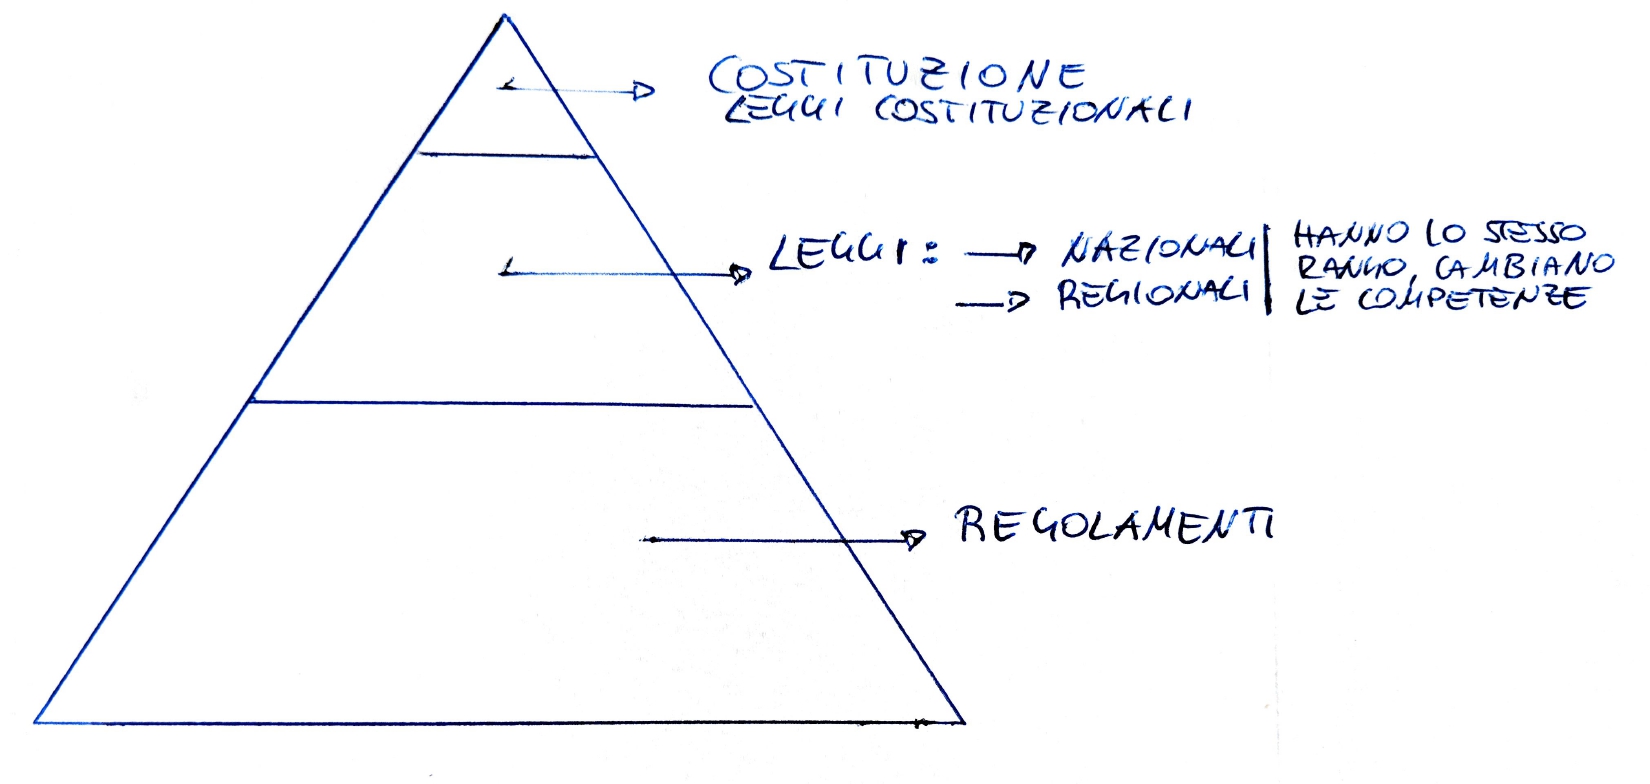 COSTITUZIONE
LEGGI COSTITUZIONALI
LEGGI: → NAZIONALI
→ REGIONALI
HANNO LO STESSO
RANGO, CAMBIANO
LE COMPETENZE
REGOLAMENTI